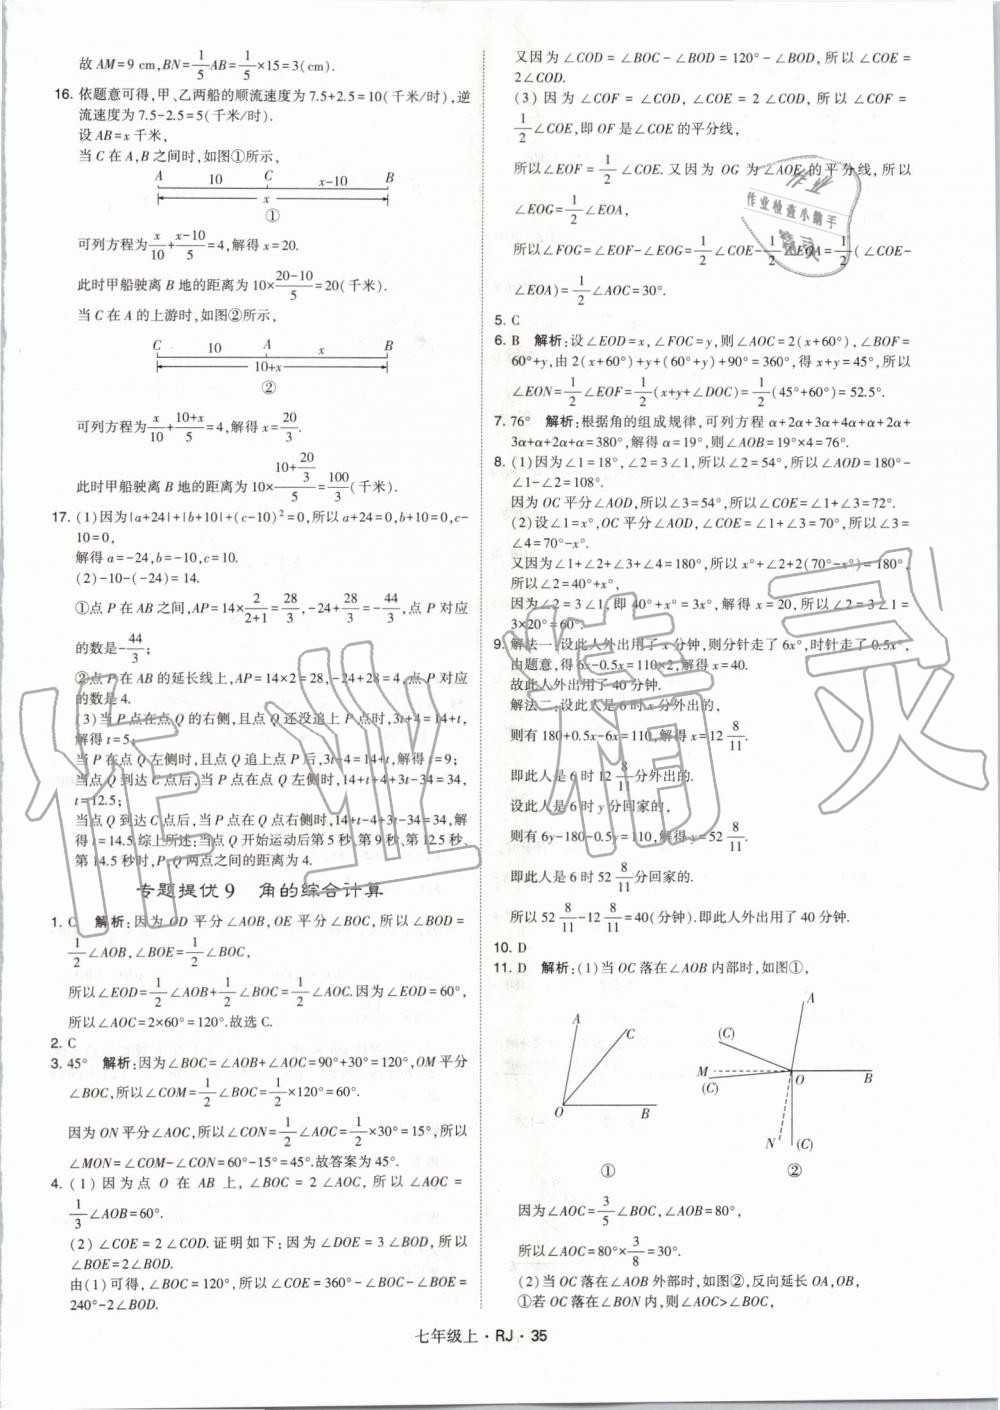 故AM=9 cm,BN=1/5AB=1/5×15=3(cm).
16. 依题意可得,甲、乙两船的顺流速度为7.5+2.5=10(千米/时),逆
流速度为7.5-2.5=5(千米/时).
设AB=x千米,
当C在A,B之间时,如图①所示,
A 10 C x-10 B
x
①
可列方程为x/10+(x-10)/5=4,解得x=20.
此时甲船驶离B地的距离为10×(20-10)/5=20(千米).
当C在A的上游时,如图②所示,
C 10 A x B
10+x
②
可列方程为x/10+(10+x)/5=4,解得x=20/3.
此时甲船驶离B地的距离为10×(10+20/3)/5=100/3(千米).
17. (1)因为|a+24|+|b+10|+(c-10)²=0,所以a+24=0,b+10=0,c-
10=0,
解得a=-24,b=-10,c=10.
(2)-10-(-24)=14.
①点P在AB之间,AP=14×2/(2+1)=28/3,-24+28/3=-44/3,点P对应
的数是-44/3;
②点P在AB的延长线上,AP=14×2=28,-24+28=4,点P对应
的数是4.
(3)当P点在点Q的右侧,且点Q还没追上P点时,3t+4=14+t,
解得t=5;
当P在点Q左侧时,且点Q追上点P后,3t-4=14+t,解得t=9;
当点Q到达C点后,当P点在点Q左侧时,14+t+4+3t-34=34,
t=12.5;
当点Q到达C点后,当P点在点Q右侧时,14+t-4+3t-34=34,解
得t=14.5.综上所述:当点Q开始运动后第5秒、第9秒、第12.5秒、
第14.5秒时,P、Q两点之间的距离为4.
专题提优9 角的综合计算
1. C 解析:因为OD平分∠AOB,OE平分∠BOC,所以∠BOD=
1/2∠AOB,∠BOE=1/2∠BOC,
所以∠EOD=1/2∠AOB+1/2∠BOC=1/2∠AOC.因为∠EOD=60°,
所以∠AOC=2×60°=120°.故选C.
2. C
3. 45° 解析:因为∠BOC=∠AOB+∠AOC=90°+30°=120°,OM平分
∠BOC,所以∠COM=1/2∠BOC=1/2×120°=60°.
因为ON平分∠AOC,所以∠CON=1/2∠AOC=1/2×30°=15°,所以
∠MON=∠COM-∠CON=60°-15°=45°.故答案为45°.
4. (1)因为点O在AB上,∠BOC=2∠AOC,所以∠AOC=
1/3∠AOB=60°.
(2)∠COE=2∠COD.证明如下:因为∠DOE=3∠BOD,所以
∠BOE=2∠BOD.
由(1)可得,∠BOC=120°,所以∠COE=360°-∠BOC-∠BOE=
240°-2∠BOD.
又因为∠COD=∠BOC-∠BOD=120°-∠BOD,所以∠COE=
2∠COD.
(3)因为∠COF=∠COD,∠COE=2∠COD,所以∠COF=
1/2∠COE,即OF是∠COE的平分线,
所以∠EOF=1/2∠COE.又因为OG为∠AOE的平分线,所以
∠EOG=1/2∠EOA,
所以∠FOG=∠EOF-∠EOG=1/2∠COE-1/2∠EOA=1/2(∠COE-
∠EOA)=1/2∠AOC=30°.
5. C
6. B 解析:设∠EOD=x,∠FOC=y,则∠AOC=2(x+60°),∠BOF=
60°+y,由2(x+60°)+y+(60°+y)+90°=360°,得x+y=45°,所以
∠EON=1/2∠EOF=1/2(x+y+∠DOC)=1/2(45°+60°)=52.5°.
7. 76° 解析:根据角的组成规律,可列方程α+2α+3α+4α+α+2α+
3α+α+2α+α=380°,解得α=19°,则∠AOB=19°×4=76°.
8. (1)因为∠1=18°,∠2=3∠1,所以∠2=54°,所以∠AOD=180°-
∠1-∠2=108°.
因为OC平分∠AOD,所以∠3=54°,所以∠COE=∠1+∠3=72°.
(2)设∠1=x°,OC平分∠AOD,∠COE=∠1+∠3=70°,所以∠3=
∠4=70°-x°.
又因为∠1+∠2+∠3+∠4=180°,所以x°+∠2+2(70°-x°)=180°,
所以∠2=40°+x°.
因为∠2=3∠1,即40°+x°=3x°,解得x=20,所以∠2=3∠1=
3×20°=60°.
9. 解法一:设此人外出用了x分钟,则分针走了6x°,时针走了0.5x°,
由题意,得6x-0.5x=110×2,解得x=40.
故此人外出用了40分钟.
解法二:设此人是6时x分外出的,
则有180+0.5x-6x=110,解得x=12 8/11.
即此人是6时12 8/11分外出的.
设此人是6时y分回家的,
则有6y-180-0.5y=110,解得y=52 8/11.
即此人是6时52 8/11分回家的.
所以52 8/11-12 8/11=40(分钟).即此人外出用了40分钟.
10. D
11. D 解析:(1)当OC落在∠AOB内部时,如图①,
A C O B
①
(C) A M (C) O B N (C)
②
因为∠AOC=3/5∠BOC,∠AOB=80°,
所以∠AOC=80°×3/8=30°.
(2)当OC落在∠AOB外部时,如图②,反向延长OA,OB,
①若OC落在∠BON内,则∠AOC>∠BOC,
七年级上·RJ·35
作业
作业检查小帮手
精灵
作业精灵